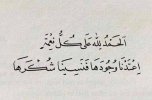 الحَمْدُ لِله عَلى كُلِّ نِعْمَةٍ
إعْتَدْنَا وُجُودَهَا فَنَسِينَا شُكْرَهَا